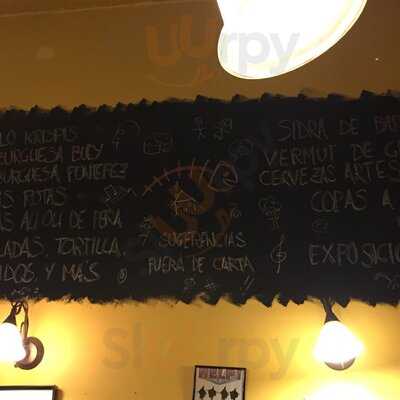 LO KRISPIS
BURGUESA BUDY
BURGUESA PONFEPEZ
AS POTAS
AS ALI OLI DE PERA
LADAS, TORTILLA,
IDOS, Y MÁS
SUGERENCIAS
FUERA DE CARTA
SIDRA DE BAR
VERMUT DE G
CERVEZAS ARTES
COPAS A
EXPOSICIO